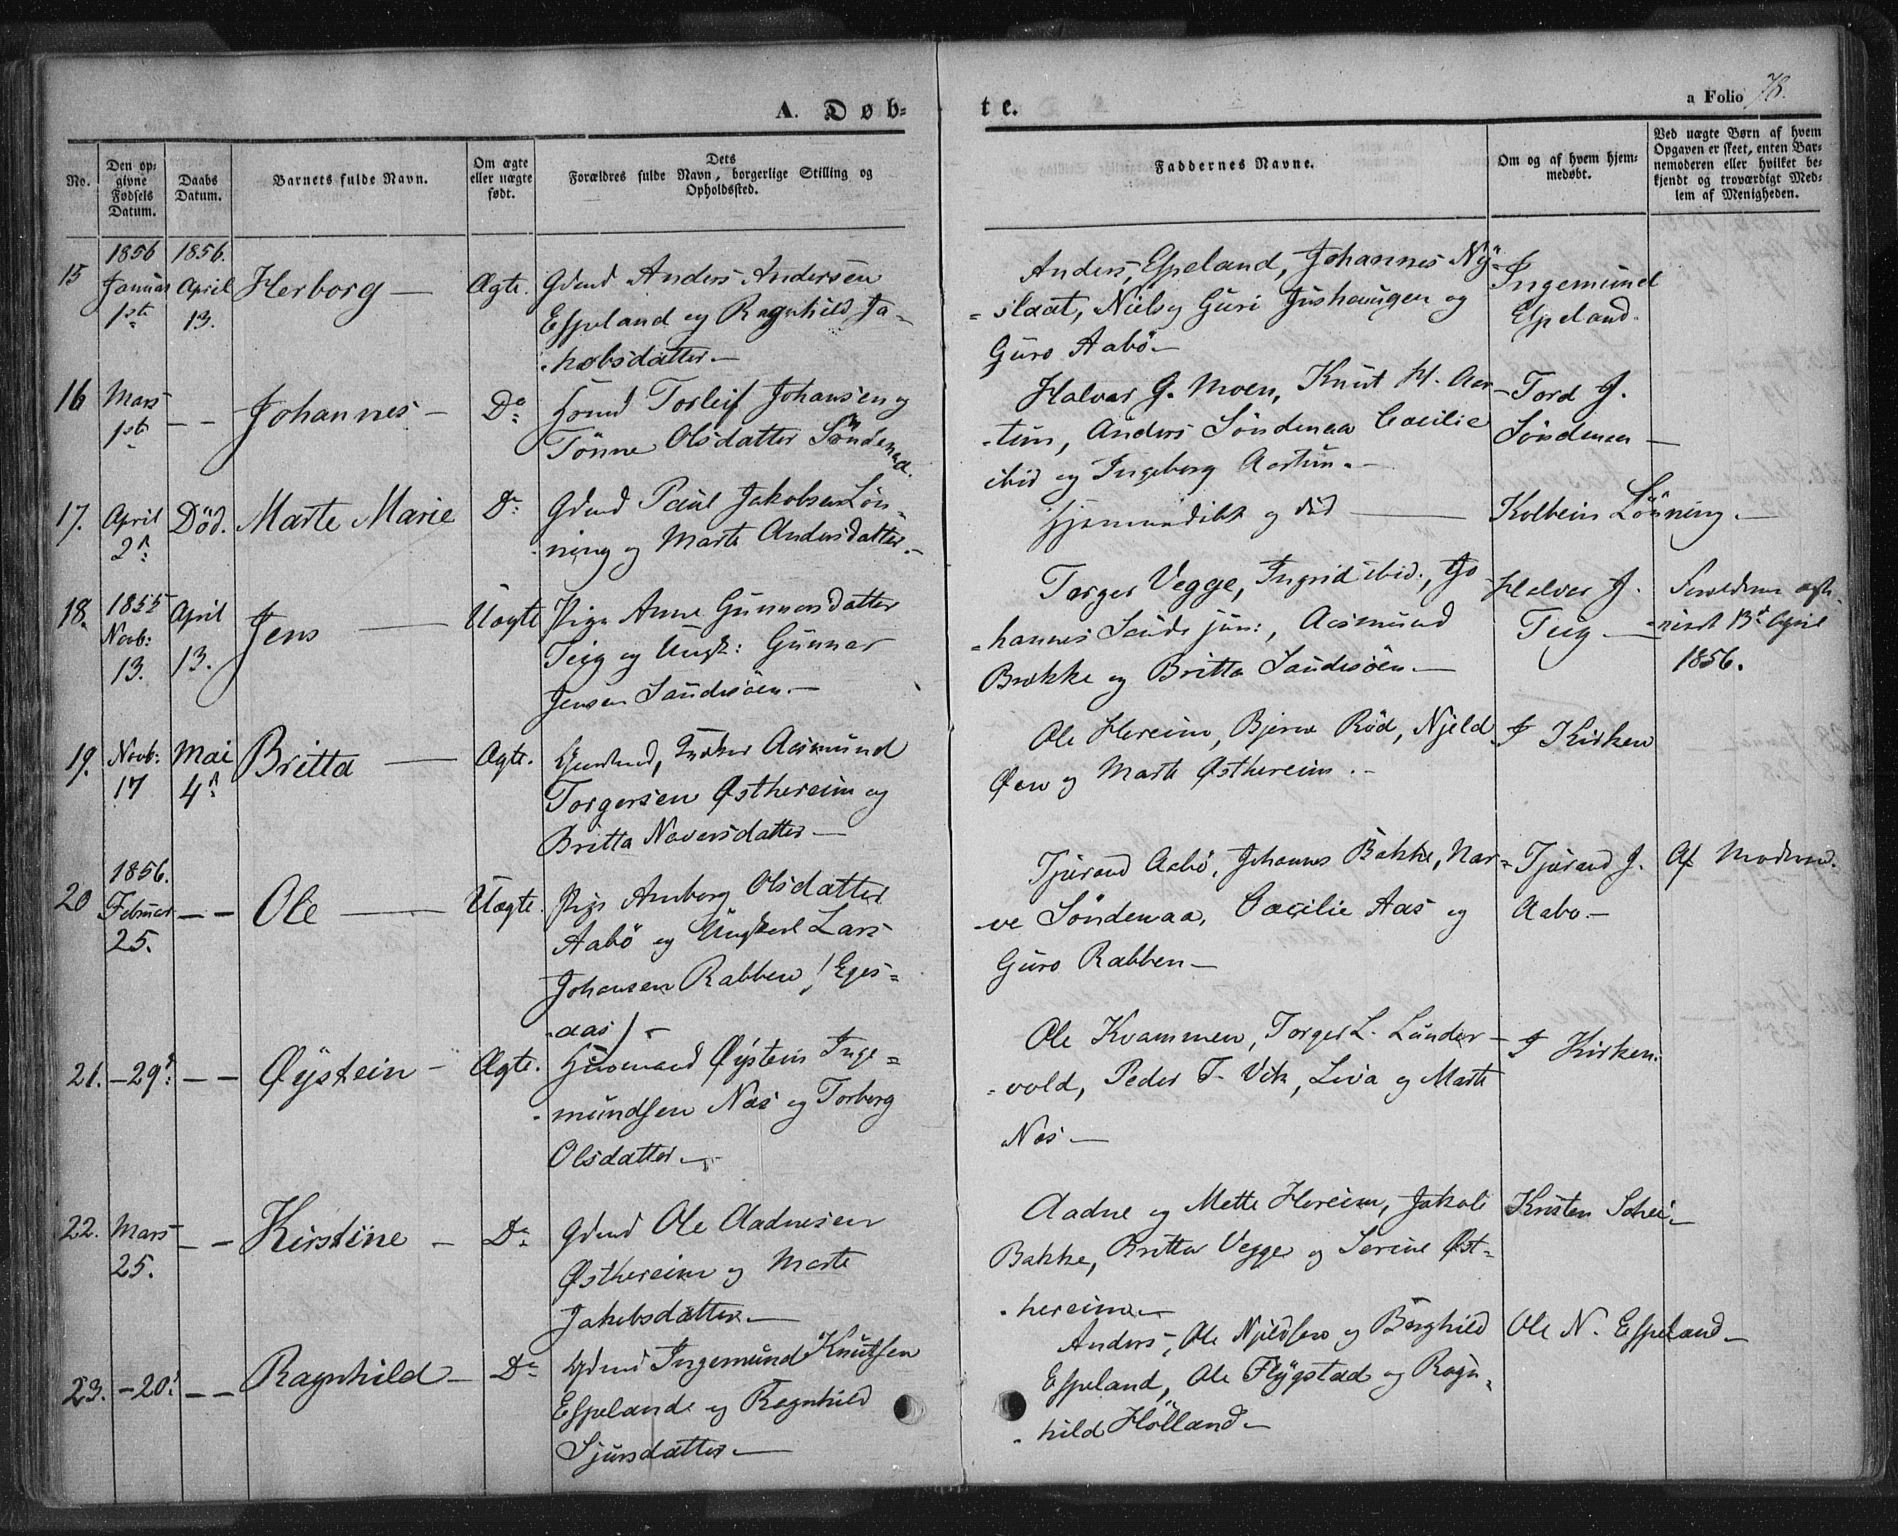 A. Døb-
te.
a Folio 78.
No.
Den op-
givne
Fødsels
Datum.
Daabs
Datum.
Barnets fulde Navn.
Om ægte
eller uægte
født.
Dets
Forældres fulde Navn, borgerlige Stilling og
Opholdssted.
Faddernes Navne.
Om og af hvem hjem-
medøbt.
Ved uægte Børn af hvem
Opgaven er skeet, enten Bar-
nemoderen eller hvilket be-
kjendt og troværdigt Med-
lem af Menigheden.
15
1856
Januar
1ste
1856.
April
13.
Herborg —
Ægte.
Gdmd Anders Andersen
Espeland og Ragnhild Ja-
kobsdatter —
Anders, Espeland, Johannes Ny-
slaat, Niels og Guri Jushaugen og
Guro Aabö —
Ingemund
Espeland.
16
Mars
1ste
— —
Johannes —
Do
Hsmd Torleif Johansen og
Tönne Olsdatter Söndenaa.
Halvar G. Moen, Knut H. Aar-
tun, Anders Söndenaa Cæcilie
ibid og Ingeborg Aartun. —
Tord J.
Söndenaa —
17.
April
2d
Död.
Marte Marie
Do
Gdmd Paul Jakobsen Lön-
ning og Marte Andersdatter. —
Hjemmedöbt og död —
Kolbein Lönning. —
18.
1855
Novb:
13.
April
13.
Jens —
Uægte
Pige Anne Gunnarsdatter
Teig og Ungk: Gunnar
Jensen Sandesöen. —
Torger Vegge, Ingrid ibid., Jo-
hannes Sande jun:, Aasmund
Brekke og Britta Sandesöen. —
Halvor J.
Teig —
1856.
19.
Novb:
17
Mai
4d
Britta —
Ægte.
Aasmund
Torgersen Østhereim og
Britta Navarsdatter —
Ole Hereim, Bjerne Röd, Njeld
Øen og Marte Østhereim. —
I Kirken
20
1856.
Februar
25.
— —
Ole —
Uægte.
Pige Anborg Olsdatter
Aabö og Ungkarl Lars
Johansen Rabben, (Eges-
aas) —
Tjerand Aabö, Johannes Bakke, Nar-
ve Söndenaa, Cæcilie Aas og
Guro Rabben —
Tjerand J.
Aabo —
Af Moderen.
21.
— 29d:
— —
Øystein —
Ægte.
Huusmand Øystein Inge-
mundsen Næs og Torborg
Olsdatter —
Ole Kvammen, Torger L. Lunder-
vold, Peder T. Vik, Liva og Marte
Næs —
I Kirken.
22.
Mars
25.
— —
Kirstine —
Do
Gdmd Ole Aadnesen
Østhereim og Marte
Jakobsdatter —
Aadne og Mette Hereim, Jakob
Bakke, Britta Vegge og Serine Øst-
hereim —
Kristen Schei —
23.
— 20d:
— —
Ragnhild —
Do
Gdmd Ingemund Knutsen
Espeland og Ragnhild
Sjursdatter —
Anders, Ole Njeldsen og Börghild
Espeland, Ole Flygstad og Ragn-
hild Hölland —
Ole N. Espeland —